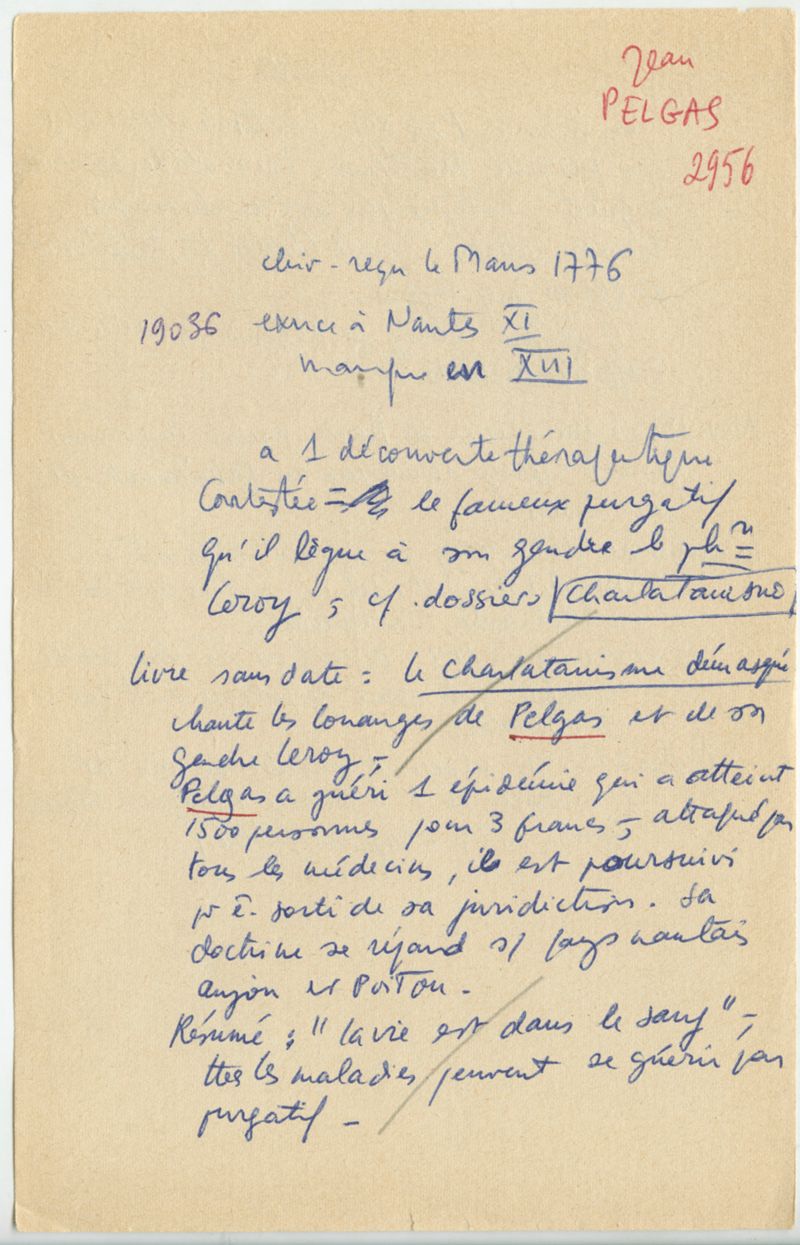 Jean
PELGAS
2956
chir - reçu le Mans 1776
19036 exerce à Nantes XI
manque en XIII
a 1 découverte thérapeutique
Contestée = le fameux purgatif
qu'il lègue à son gendre le ph n
Leroy ; cf. dossiers Charlatanisme
livre sans date : le Charlatanisme démasqué
chante les louanges de Pelgas et de son
gendre Leroy -
Pelgas a guéri 1 épidémie qui a atteint
1500 personnes pour 3 francs - attaqué par
tous les médecins, il est poursuivi
pr ê. sorti de sa juridiction. Sa
doctrine se répand s/ pays nantais
Anjou et Poitou -
Résumé : "la vie est dans le sang" -
ttes les maladies peuvent se guérir par
purgatif -